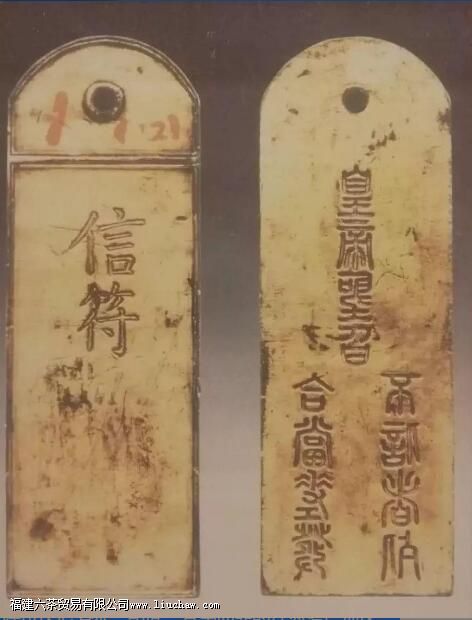 21
信符
皇帝聖旨
合當差發
不信者斬
福建六茶贸易有限公司www.liuchaw.com